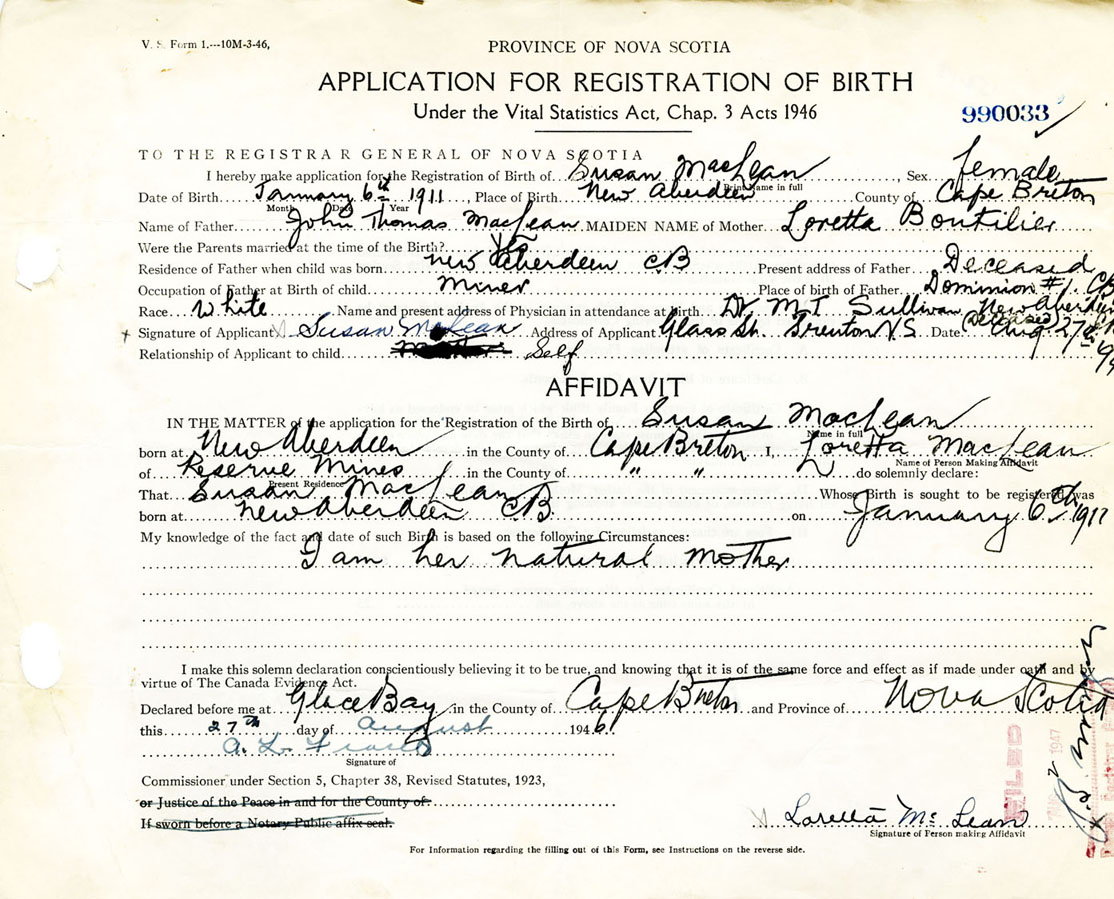 V. S. Form 1.---10M-3-46,
PROVINCE OF NOVA SCOTIA
APPLICATION FOR REGISTRATION OF BIRTH
Under the Vital Statistics Act, Chap. 3 Acts 1946
990033
TO THE REGISTRAR GENERAL OF NOVA SCOTIA
I hereby make application for the Registration of Birth of Susan MacLean, Sex female
Print Name in full
Date of Birth January 6th 1911, Place of Birth New Aberdeen County of Cape Briton
Month Date Year
Name of Father John Thomas MacLean MAIDEN NAME of Mother Loretta Boutilier
Were the Parents married at the time of the Birth? Yes
Residence of Father when child was born New Aberdeen CB Present address of Father Deceased
Occupation of Father at Birth of child Miner Place of birth of Father Dominion #1. CB
Race White Name and present address of Physician in attendance at birth Dr M T Sullivan New Aberdeen
(Deceased)
Signature of Applicant Susan McLean Address of Applicant Glass St. Trenton N.S. Date Aug 27th
Relationship of Applicant to child Self
AFFIDAVIT
IN THE MATTER of the application for the Registration of the Birth of Susan MacLean
Name in full
born at New Aberdeen in the County of Cape Breton I, Loretta MacLean
Name of Person Making Affidavit
of Reserve Mines in the County of " " do solemnly declare:
Present Residence
That Susan MacLean Whose Birth is sought to be registered was
born at New Aberdeen CB on January 6th 1911
My knowledge of the fact and date of such Birth is based on the following Circumstances:
I am her natural mother
I make this solemn declaration conscientiously believing it to be true, and knowing that it is of the same force and effect as if made under oath and by
virtue of The Canada Evidence Act.
Declared before me at Glace Bay in the County of Cape Breton and Province of Nova Scotia
this 27th day of August 1946
A. L.
Signature of
Commissioner under Section 5, Chapter 38, Revised Statutes, 1923,
or Justice of the Peace in and for the County of
If sworn before a Notary Public affix seal.
Loretta Mc Lean
Signature of Person making Affidavit
For Information regarding the filling out of this Form, see Instructions on the reverse side.
FILED
1947